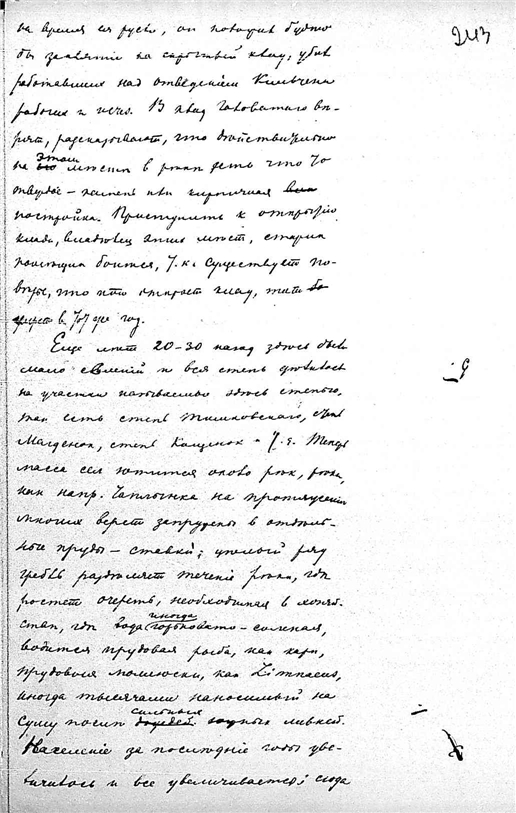 243
на время ея русло, он повторил будто
бы заклятие на скрытый клад, убив
работавших над отведением Кильчени
рабочих и исчез. В клад Гаковатаго ве-
рят, рассказывают, что действительно
на этом месте в реки есть что то
твердое – камень или кирпичная
постройка. Приступить к открытию
клада, владелец этих мест, старик
помещик боится, т.к. существует по-
верье, что кто откроет клад, тот
умрет в тот же год.
Еще лет 20-30 назад здесь было
мало селений и вся степь делилась
на участки называемые здесь степью,
так есть степь Тишковского, степь
Магденок, степь Кащенок и т.д. Теперь
масса сел ютится около рек, река,
как напр. Чаплынка на протяжении
многих верст запружены в отдель-
ные пруды – ставки; целый ряд
гребль разделяет течение реки, где
ростет очереть, необходимая в хозяй-
стве, где вода иногда горьковато-соленая,
водится прудовая рыба, как карп,
прудовыя молюски, как Limnaeus,
иногда тысячами наносимый на
сушу после сильных ливней.
Население за последние годы уве-
личилось и все увеличивается; сюда